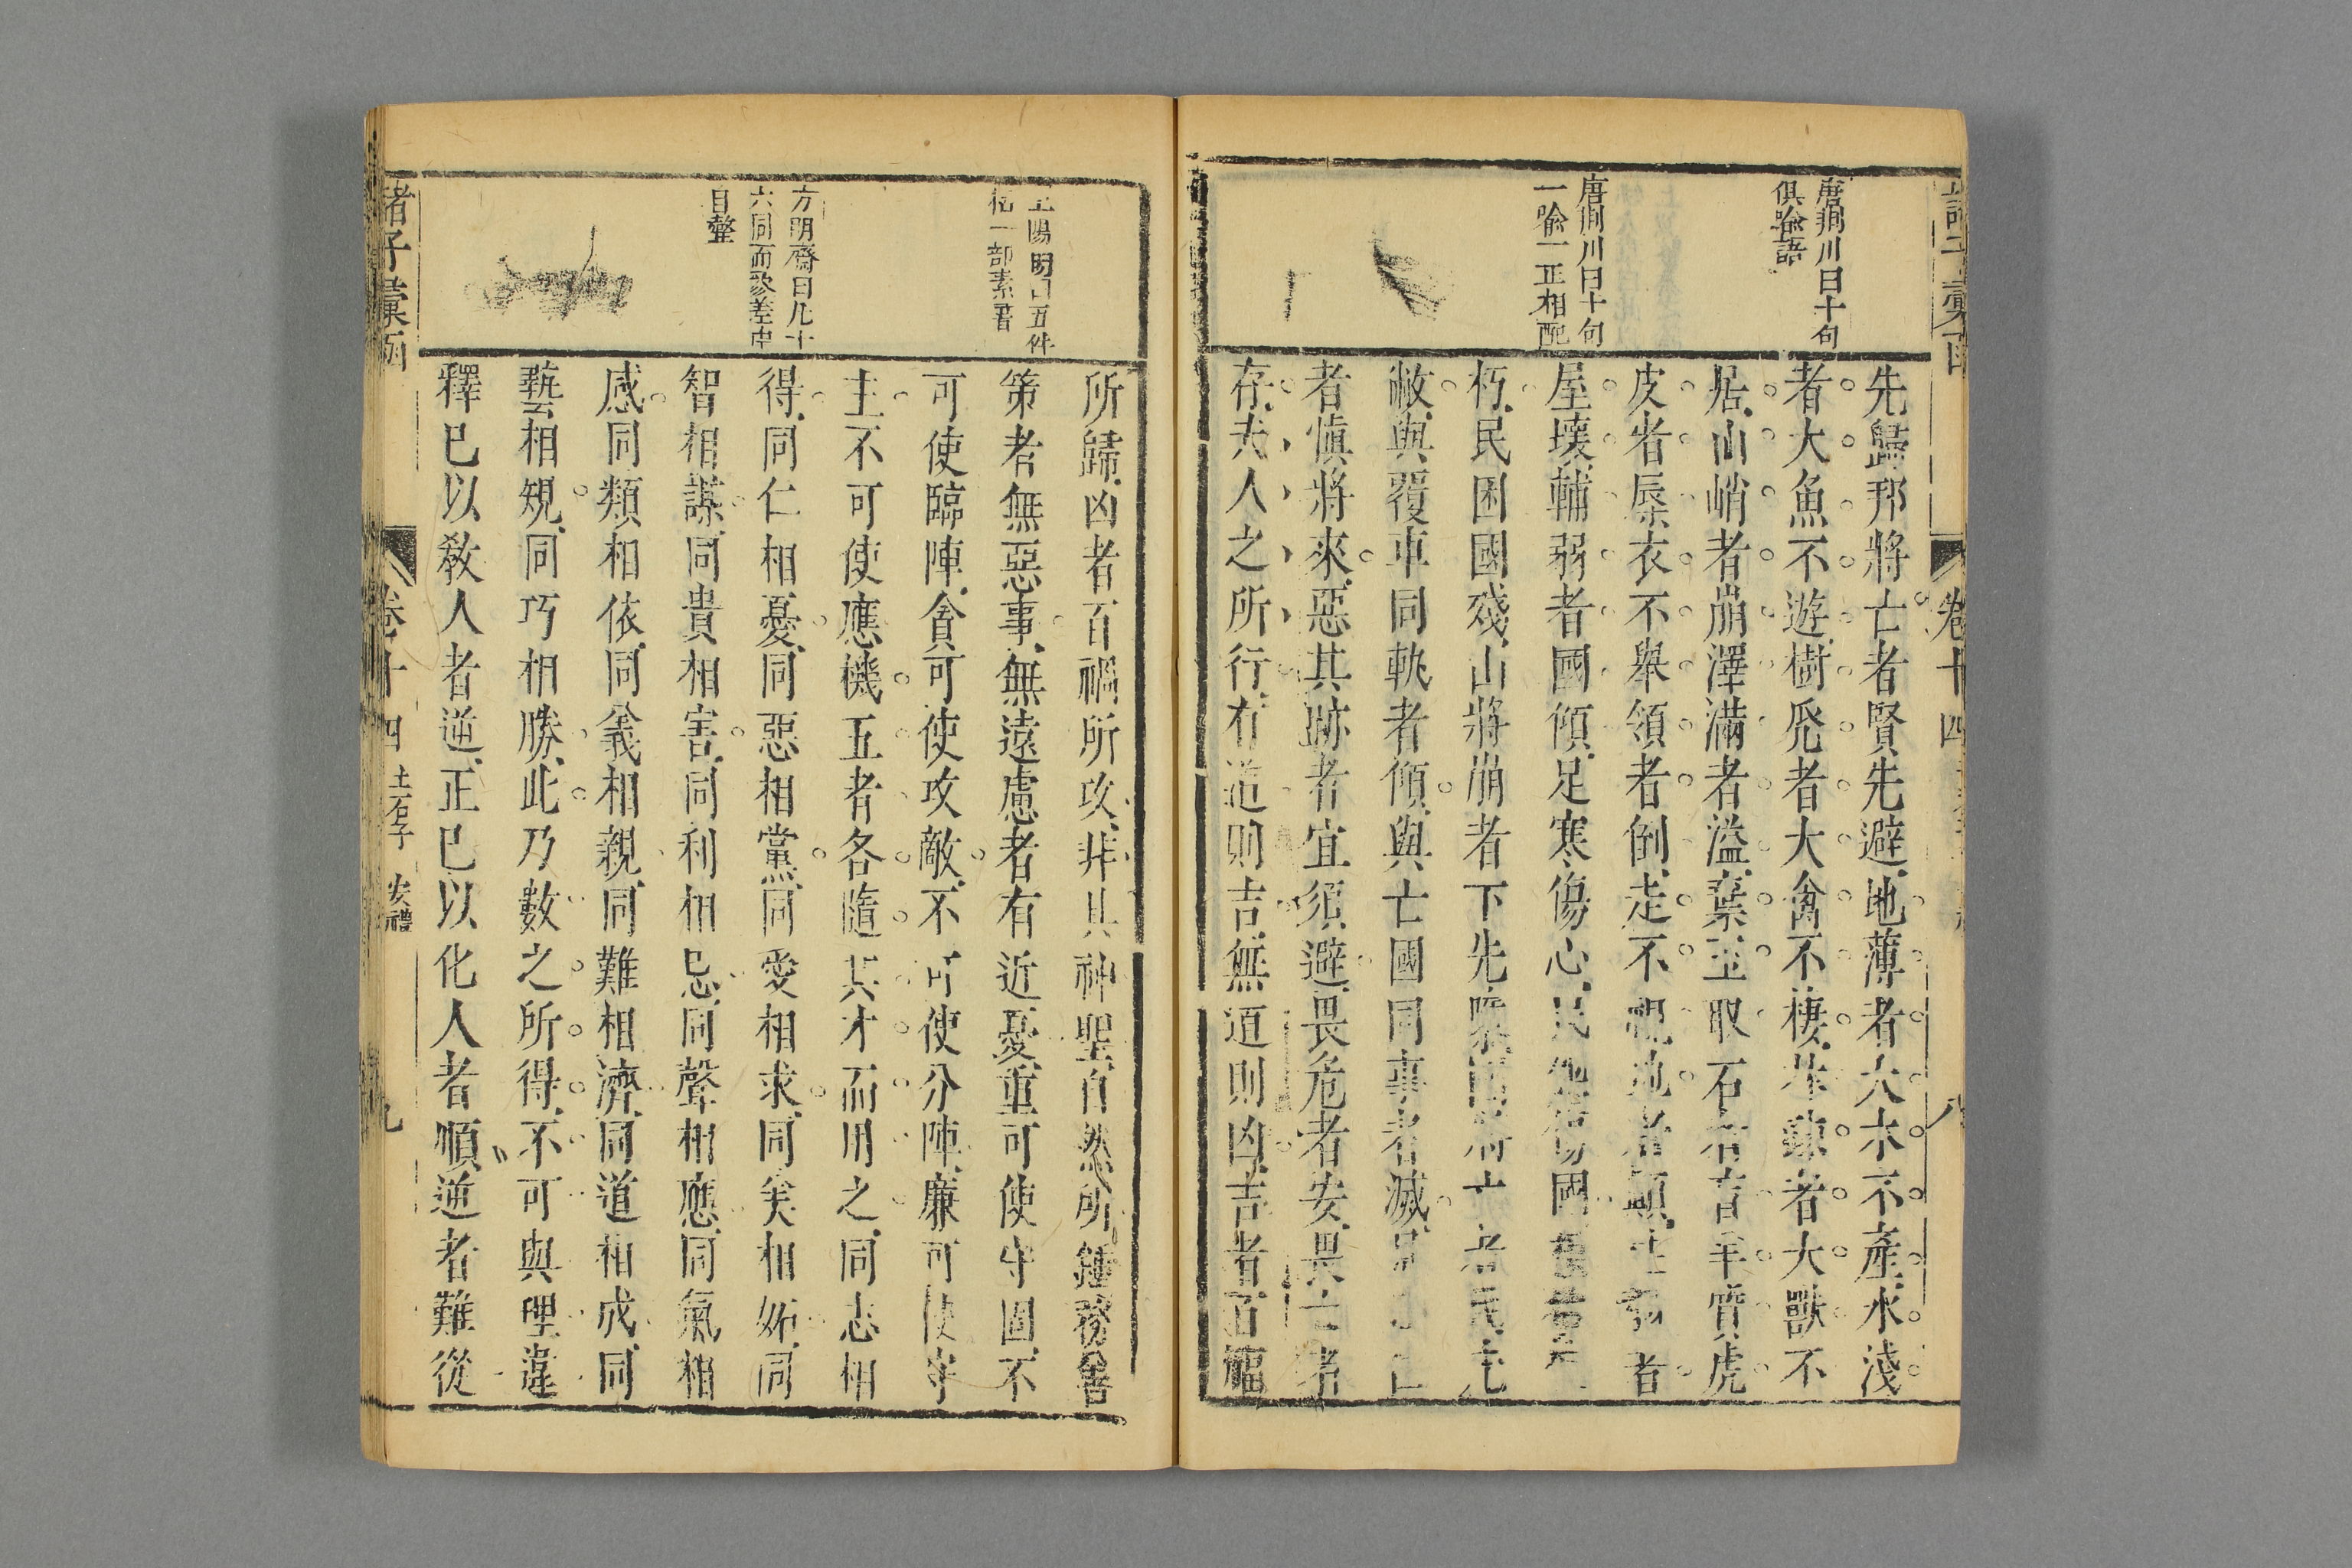 唐荆川曰十句
俱喻語
唐荆川曰十句
一喻一正相配
先歸邦將亡者賢先避地薄者大木不產水淺
者大魚不遊樹禿者大禽不棲林疎者大獸不
居山峭者崩澤滿者溢棄玉取石者盲羊質虎
皮者辱衣不舉領者倒走不視地者顛柱弱者
屋壞輔弱者國傾足寒傷心民怨傷國
朽民困國殘山將崩者下先隳國將亡者民先
敝與覆車同軌者傾與亡國同事者滅
者慎將來惡其跡者宜須避畏危者安畏亡者
存夫人之所行有道則吉無道則凶吉者百福
卷十四
八
王陽明曰五件
一部素書
方明齋曰凡十
六同而參差中
自整
所歸凶者百禍所攻非其神聖自然所鍾務善
策者無惡事無遠慮者有近憂重可使守固不
可使臨陣貪可使攻敵不可使分陣廉可使守
主不可使應機五者各隨其才而用之同志相
得同仁相憂同惡相黨同愛相求同美相妬同
智相謀同貴相害同利相忌同聲相應同氣相
感同類相依同義相親同難相濟同道相成同
藝相規同巧相勝此乃數之所得不可與理違
釋已以教人者逆正已以化人者順逆者難從
諸子彙函
卷十四
土石子
安禮
九